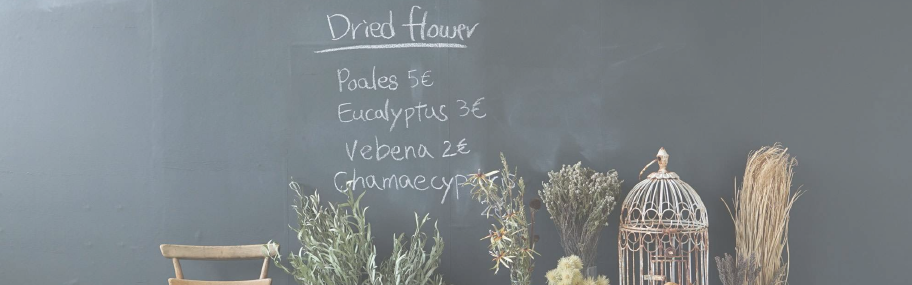 Dried flower
Poales 5€
Eucalyptus 3€
Vebena 2€